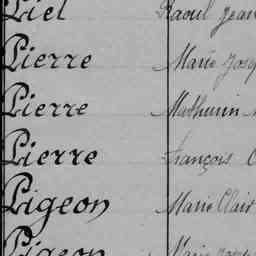 Piel Raoul Jean
Pierre Marie Josep
Pierre Mathurin
Pierre François
Pigeon Marie Clair
Pigeon Marie